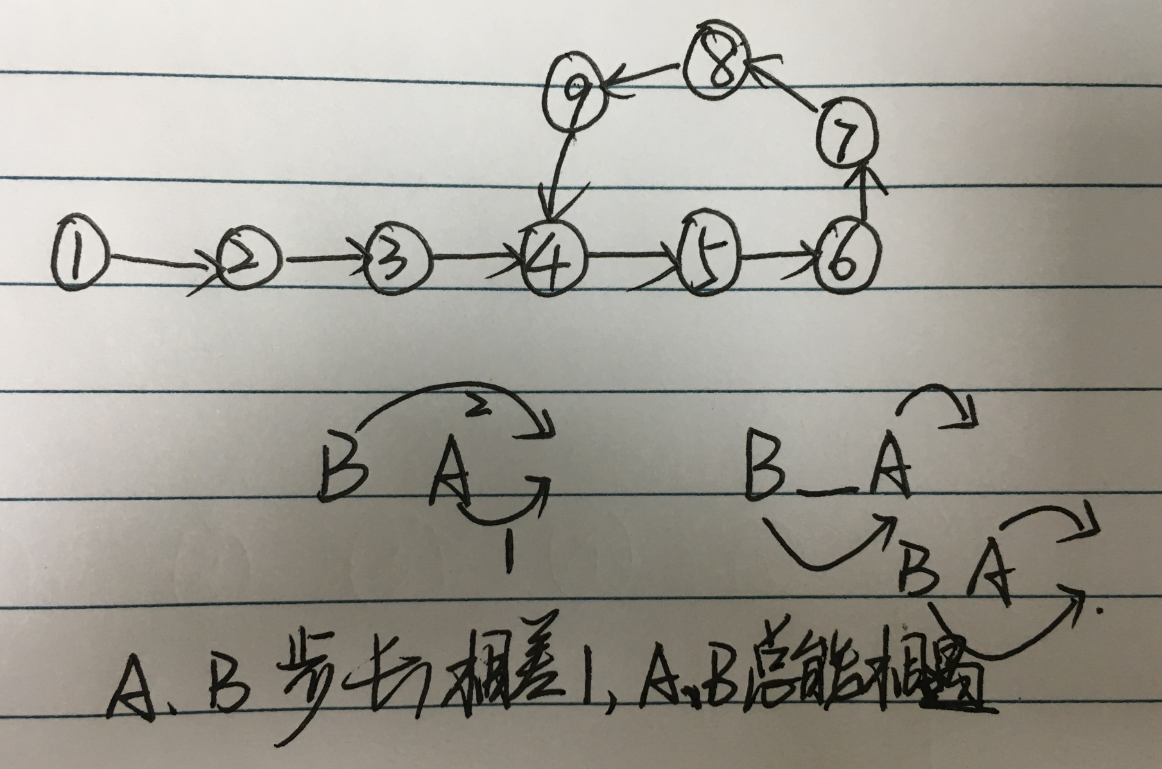 9 8
7
1 2 3 4 5 6
B A 2 B _ A
1 B A
A、B步长相差1,A、B总能相遇